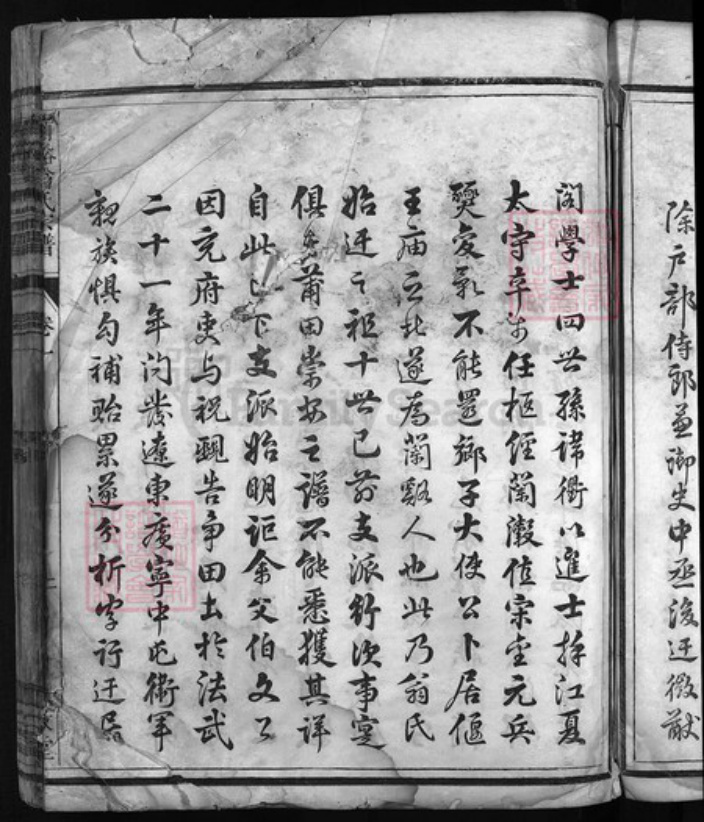 除戶部侍郎兼御史中丞後迁徽猷
閣學士四世孫諱衢以進士擢江夏
太守卒於任柩經蘭瀔值宋金元兵
燹爰家不能還鄉子大使公卜居偃
王庙之北遂為蘭谿人也此乃翁氏
始迁之祖十世已前支派行次事寔
俱 莆田崇安之譜不能悉獲其詳
自此已下支派始明詎余父伯文公
因充府吏与祝 告争田土於法武
二十一年 發遼東广寧中屯衛軍
親族惧勾補貽累遂分析字行迁居
翁氏宗譜
卷一